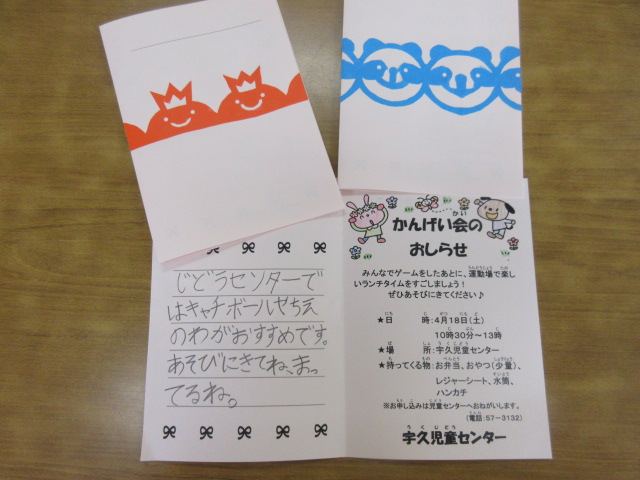 じどうセンターで
はキャチボールやちえ
のわがおすすめです。
あそびにきてね、まっ
てるね。
かんげい会のおしらせ
みんなでゲームをしたあとに、運動場で楽し
いランチタイムをすごしましょう！
ぜひあそびにきてください♪
★日　　時：4月18日（土）
10時30分～13時
★場　　所：宇久児童センター
★持ってくる物：お弁当、おやつ（少量）、
レジャーシート、水筒、
ハンカチ
※お申し込みは児童センターへおねがいします。
（電話：57-3132）
宇久児童センター